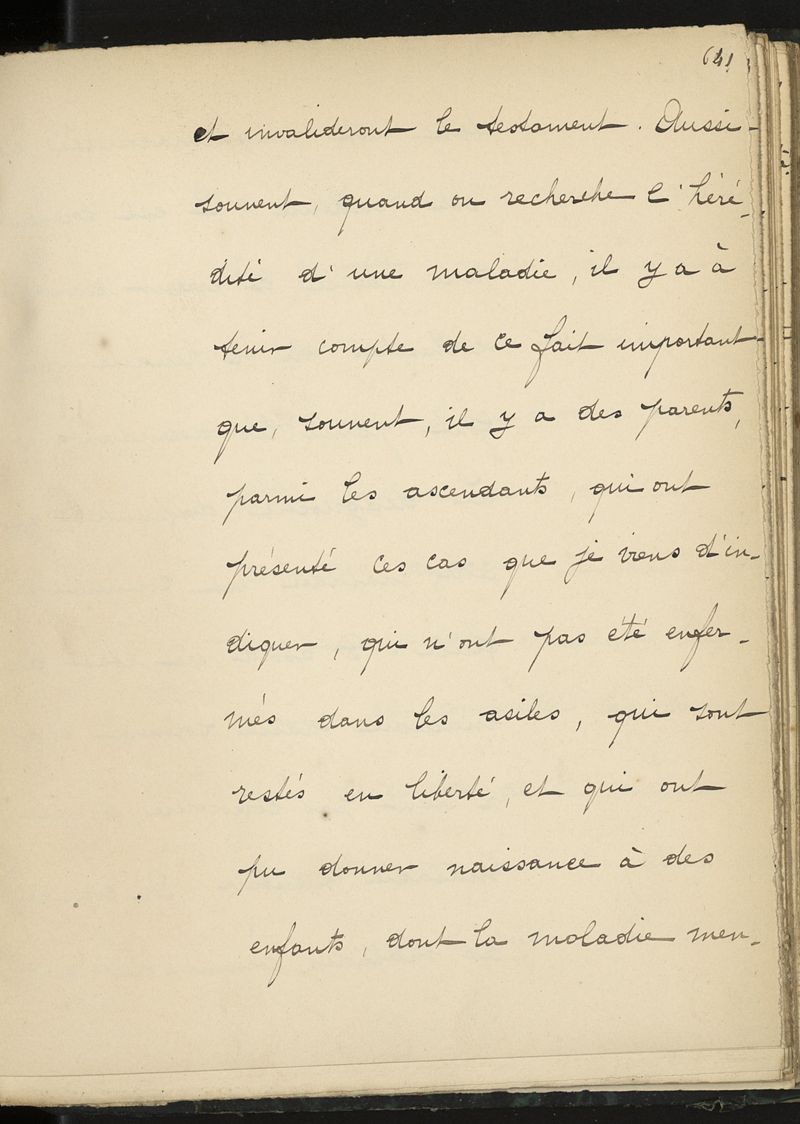 641
et invalideront le testament. Aussi
souvent, quand on recherche l'héré-
dité d'une maladie, il y a à
tenir compte de ce fait important
que, souvent, il y a des parents,
parmi les ascendants, qui ont
présenté ces cas que je viens d'in-
diquer, qui n'ont pas été enfer-
més dans les asiles, qui sont
restés en liberté, et qui ont
pu donner naissance à des
enfants, dont la maladie men-